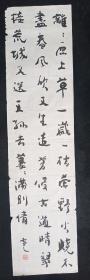 離〻原上草一歲一枯榮野火燒不
盡春風吹又生遠芳侵古道晴翠
接荒城又送王孫去萋〻滿別情